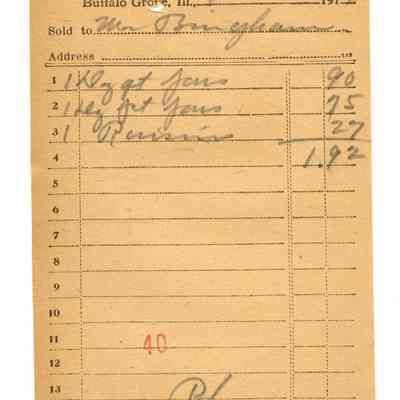 Buffalo Grove, Ill., 191
Sold to Mr Bingham
Address
1 1 Dz qt jars 90
2 1 Dz pt jars 75
3 1 27
4 1.92
5
6
7
8
9
10
11 40
12
13